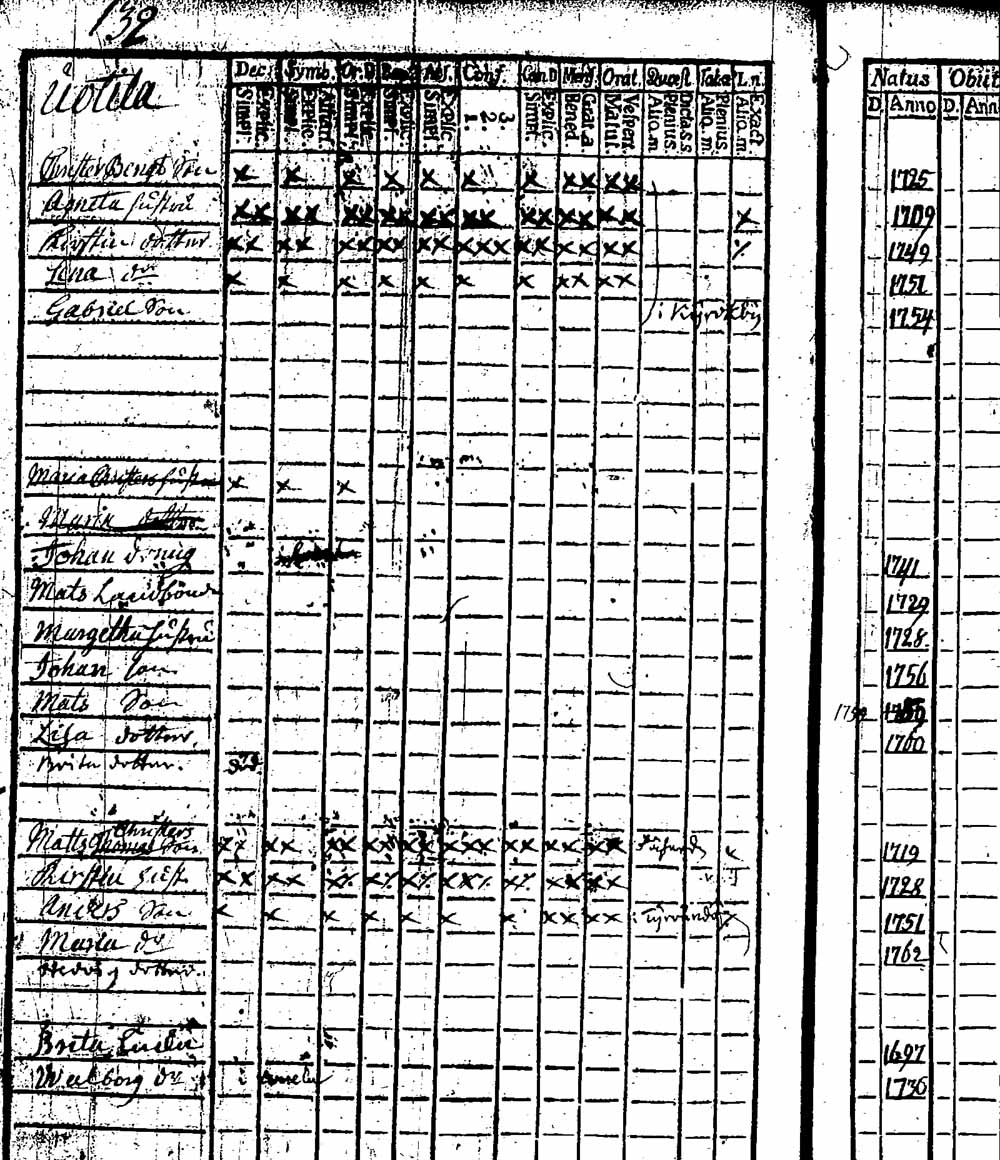 132
Uotila
Dec. Symb. Or.D. Bapt. Abs. Conf. Cœn.D. Mens. Orat. Quæst. Tabæ I.n. Natus Obiit
Simpl. Explic. Simpl. Explic. Athan. Simpl. Explic. Simpl. Explic. Simpl. Explic. 1. 2. 3. Simpl. Explic. Bened. Grat.a Matut. Vespert. Alio.m. Plenius. Dicta.s.s. Alio.m. Plenius. Alio.m. Exact. D. Anno D. Ann
Christer Bengts Son x x x x x x x xx xx 1725
Agneta hustru xx xx xx xx xx xx xx xx xx x 1709
Kirstin dotter xx xx xx xx xx xxx xx xx xx x 1749
Lena dr x x x x x x x xx xx 1751
Gabriel Son i Kyrckby 1754
Maria Christers hustru x x x
Maria dotter
Johan dräng 1741
Mats Landbonde 1729
Margetha hustru 1728
Johan Son 1756
Mats Son 1759
Lisa dotter 1760
Brita dotter.
Christers
Matts Thomas Son xx xx xx xx xx xxx xx xx xx x 1719
Kirstin hust. xx xx xx xx xx xxx xx xx xx 1728
Anders Son x x x x x x x xx xx i Tyrvändö x 1751
Maria dr 1762
Hedvig dotter.
Brita Enka 1697
Walborg dr 1736